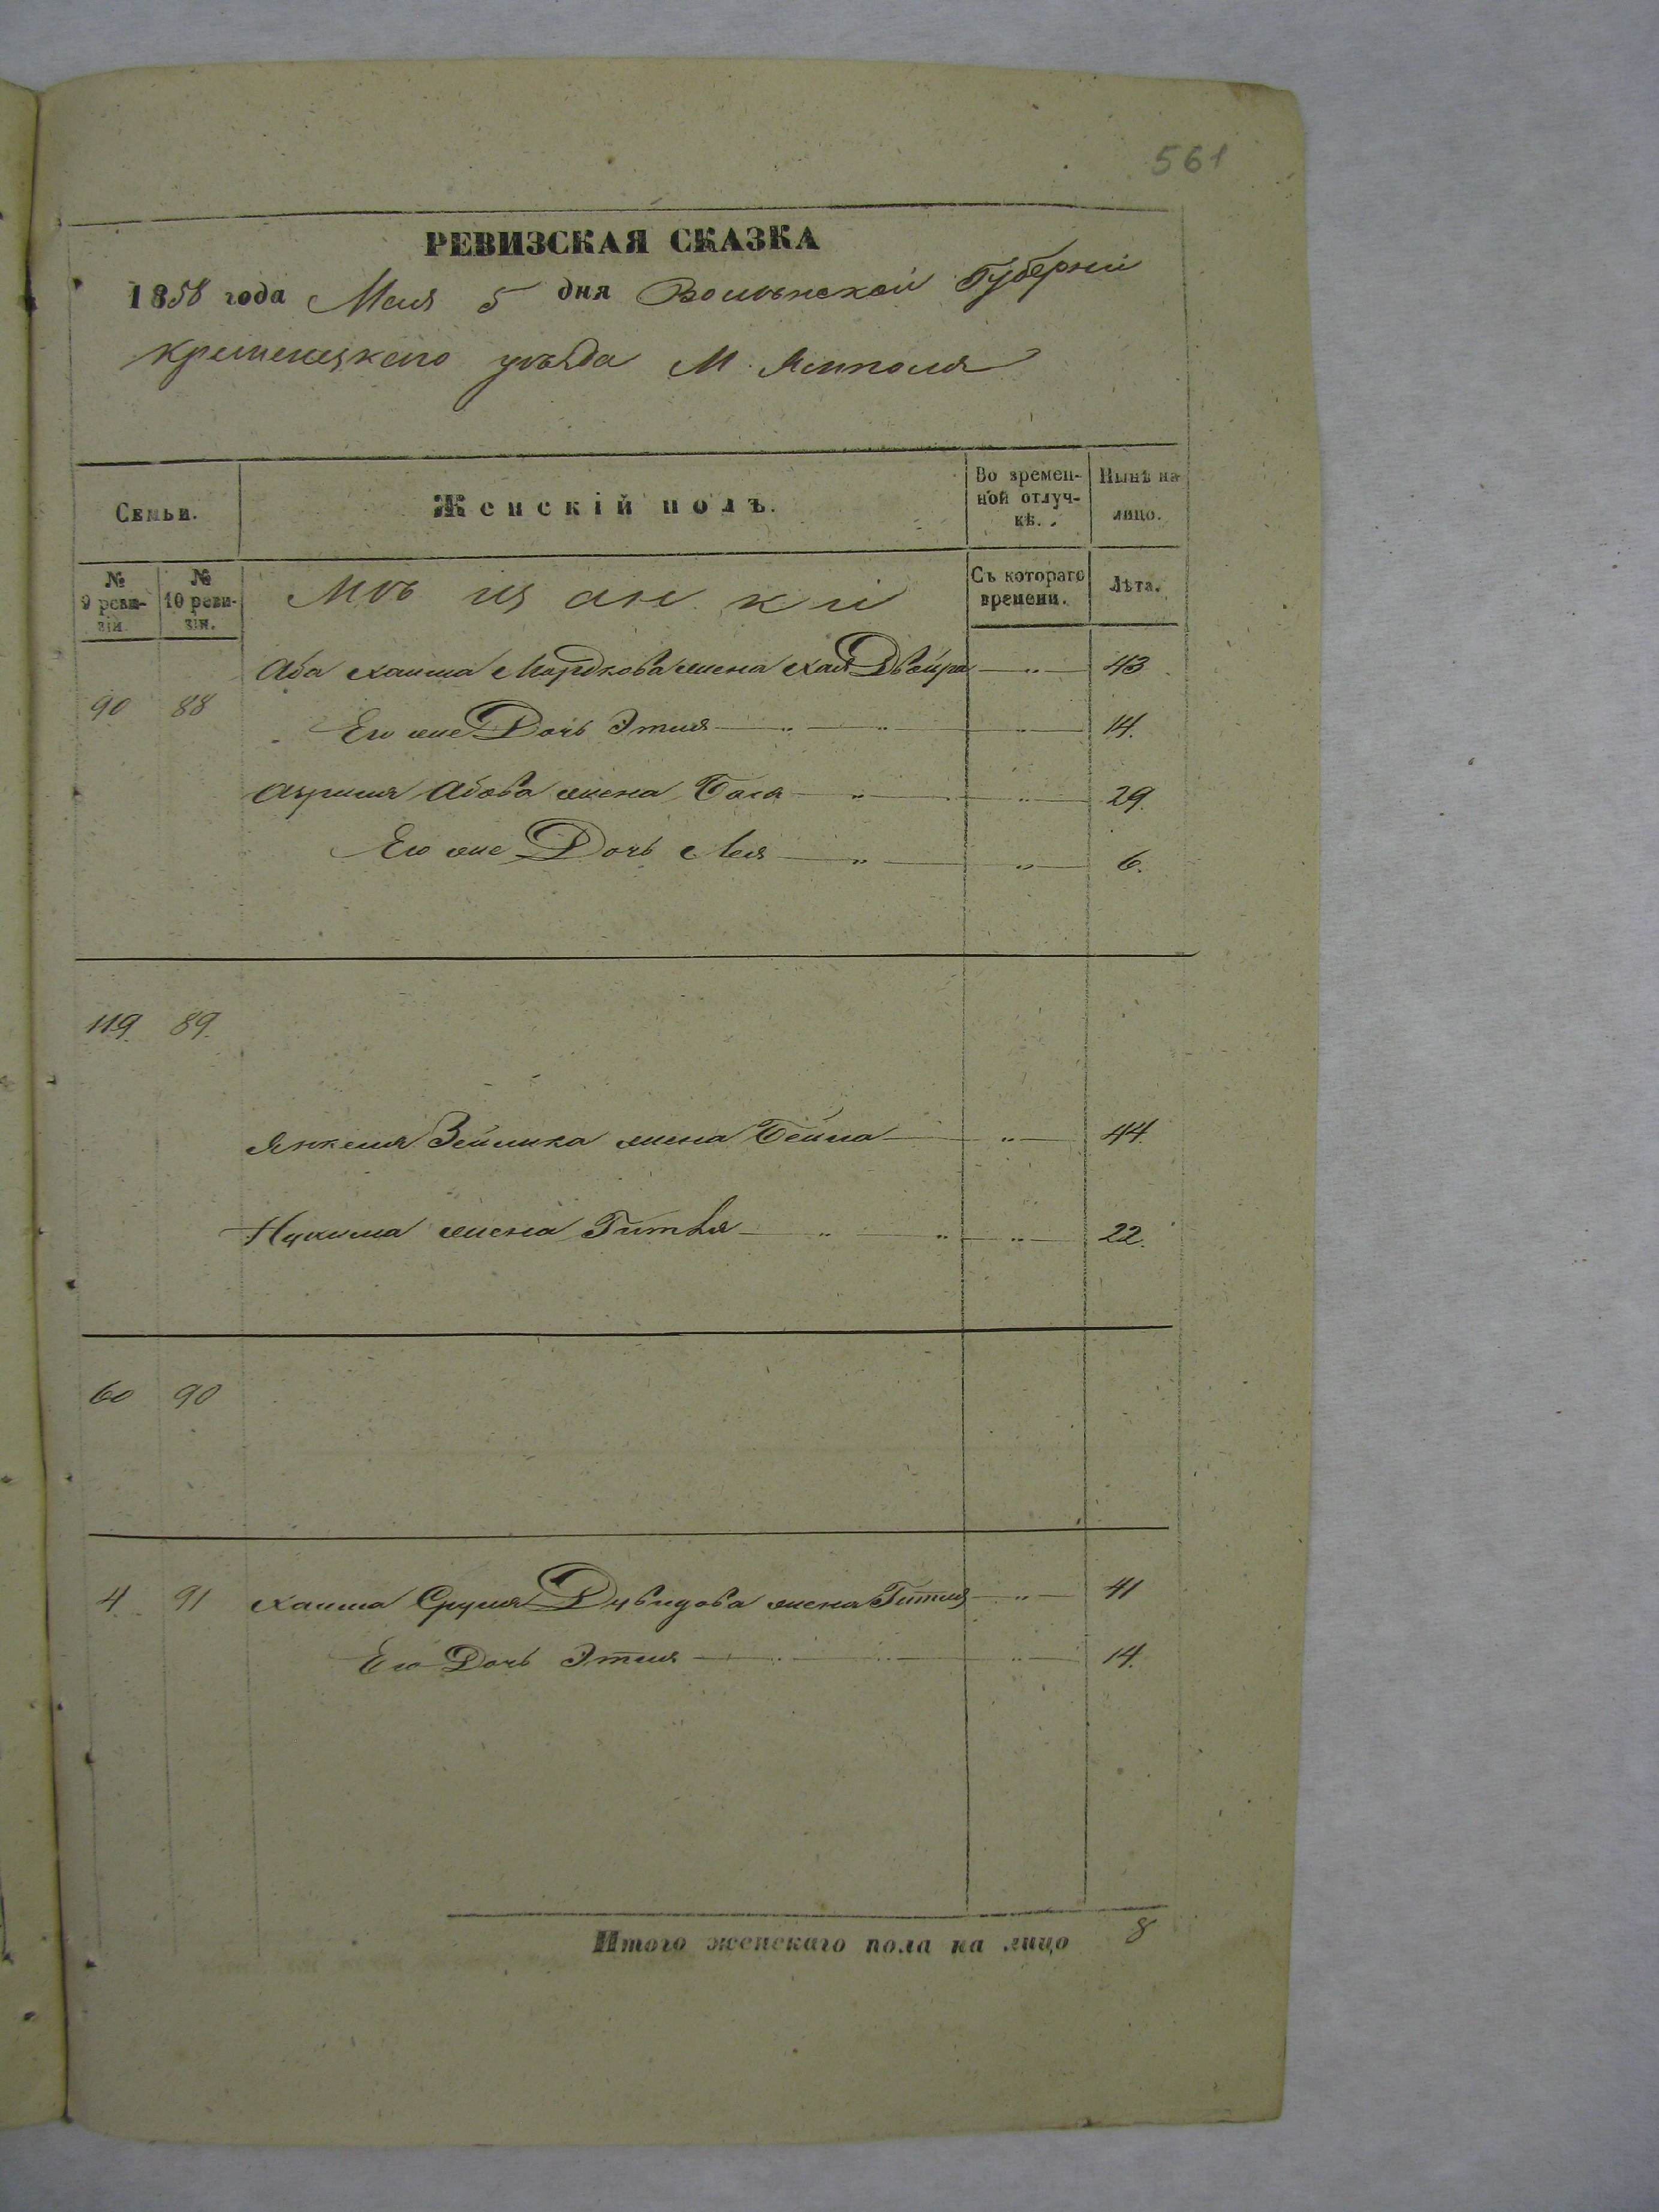 561
РЕВИЗСКАЯ СКАЗКА
1858 года Мая 5 дня Волынской Губернiи
Кременецкаго уѣзда М. Ямполя
Семьи.
Женскій полъ.
Во времен-
ной отлуч-
кѣ.
Нынѣ на
лицо.
№
9 реви-
зіи.
№
10 реви-
зіи.
Мѣщанки
Съ котораго
времени.
Лѣта.
Аба Хаима Мордкова жена Хая Двойра — „ — 43
90 88
Его же Дочь Этля — „ — „ — „ — 14.
Абова жена Бася — „ — „ — 29.
Его же Дочь Лея — „ — „ — 6.
119. 89.
Янкеля Зейлика жена Бейла — „ — 44.
Нухима жена Гитля — „ — „ — „ — 22.
60 90
4. 91 Хаима Сруля Дувидова жена Гитля — „ — 41
Его Дочь Этля — „ — „ — 14.
Итого женскаго пола на лицо 8